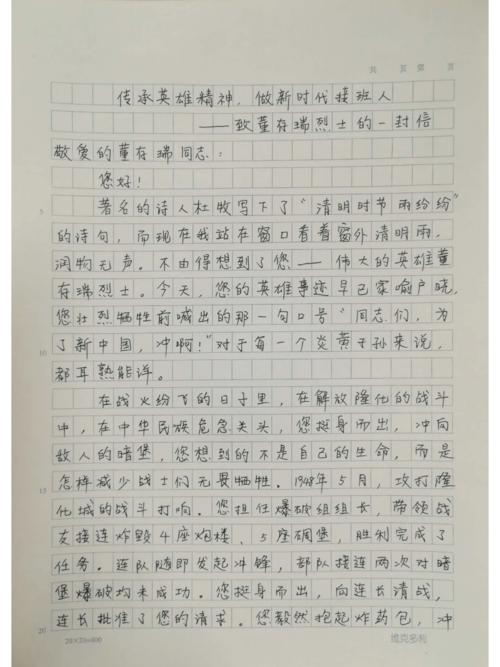 共 页 第 页
传承英雄精神，做新时代接班人
——致董存瑞烈士的一封信
敬爱的董存瑞同志：
您好！
著名的诗人杜牧写下了“清明时节雨纷纷”
5
的诗句，而现在我站在窗口看着窗外清明雨，
润物无声。不由得想到了您——伟大的英雄董
存瑞烈士。今天，您的英雄事迹早已家喻户晓，
您壮烈牺牲前喊出的那一句口号“同志们，为
了新中国，冲啊！”对于每一个炎黄子孙来说，
10
都耳熟能详。
在战火纷飞的日子里，在解放隆化的战斗
中，在中华民族危急关头，您挺身而出，冲向
敌人的暗堡，您想到的不是自己的生命，而是
怎样减少战士们无畏牺牲。1948年5月，攻打隆
15
化城的战斗打响。您担任爆破组组长，带领战
友接连炸毁4座炮楼、5座碉堡，胜利完成了
任务。连队随即发起冲锋，部队接连两次对暗
堡爆破均未成功。您挺身而出，向连长请战，
连长批准了您的请求。您毅然抱起炸药包，冲
20
20×20=400
维克多利